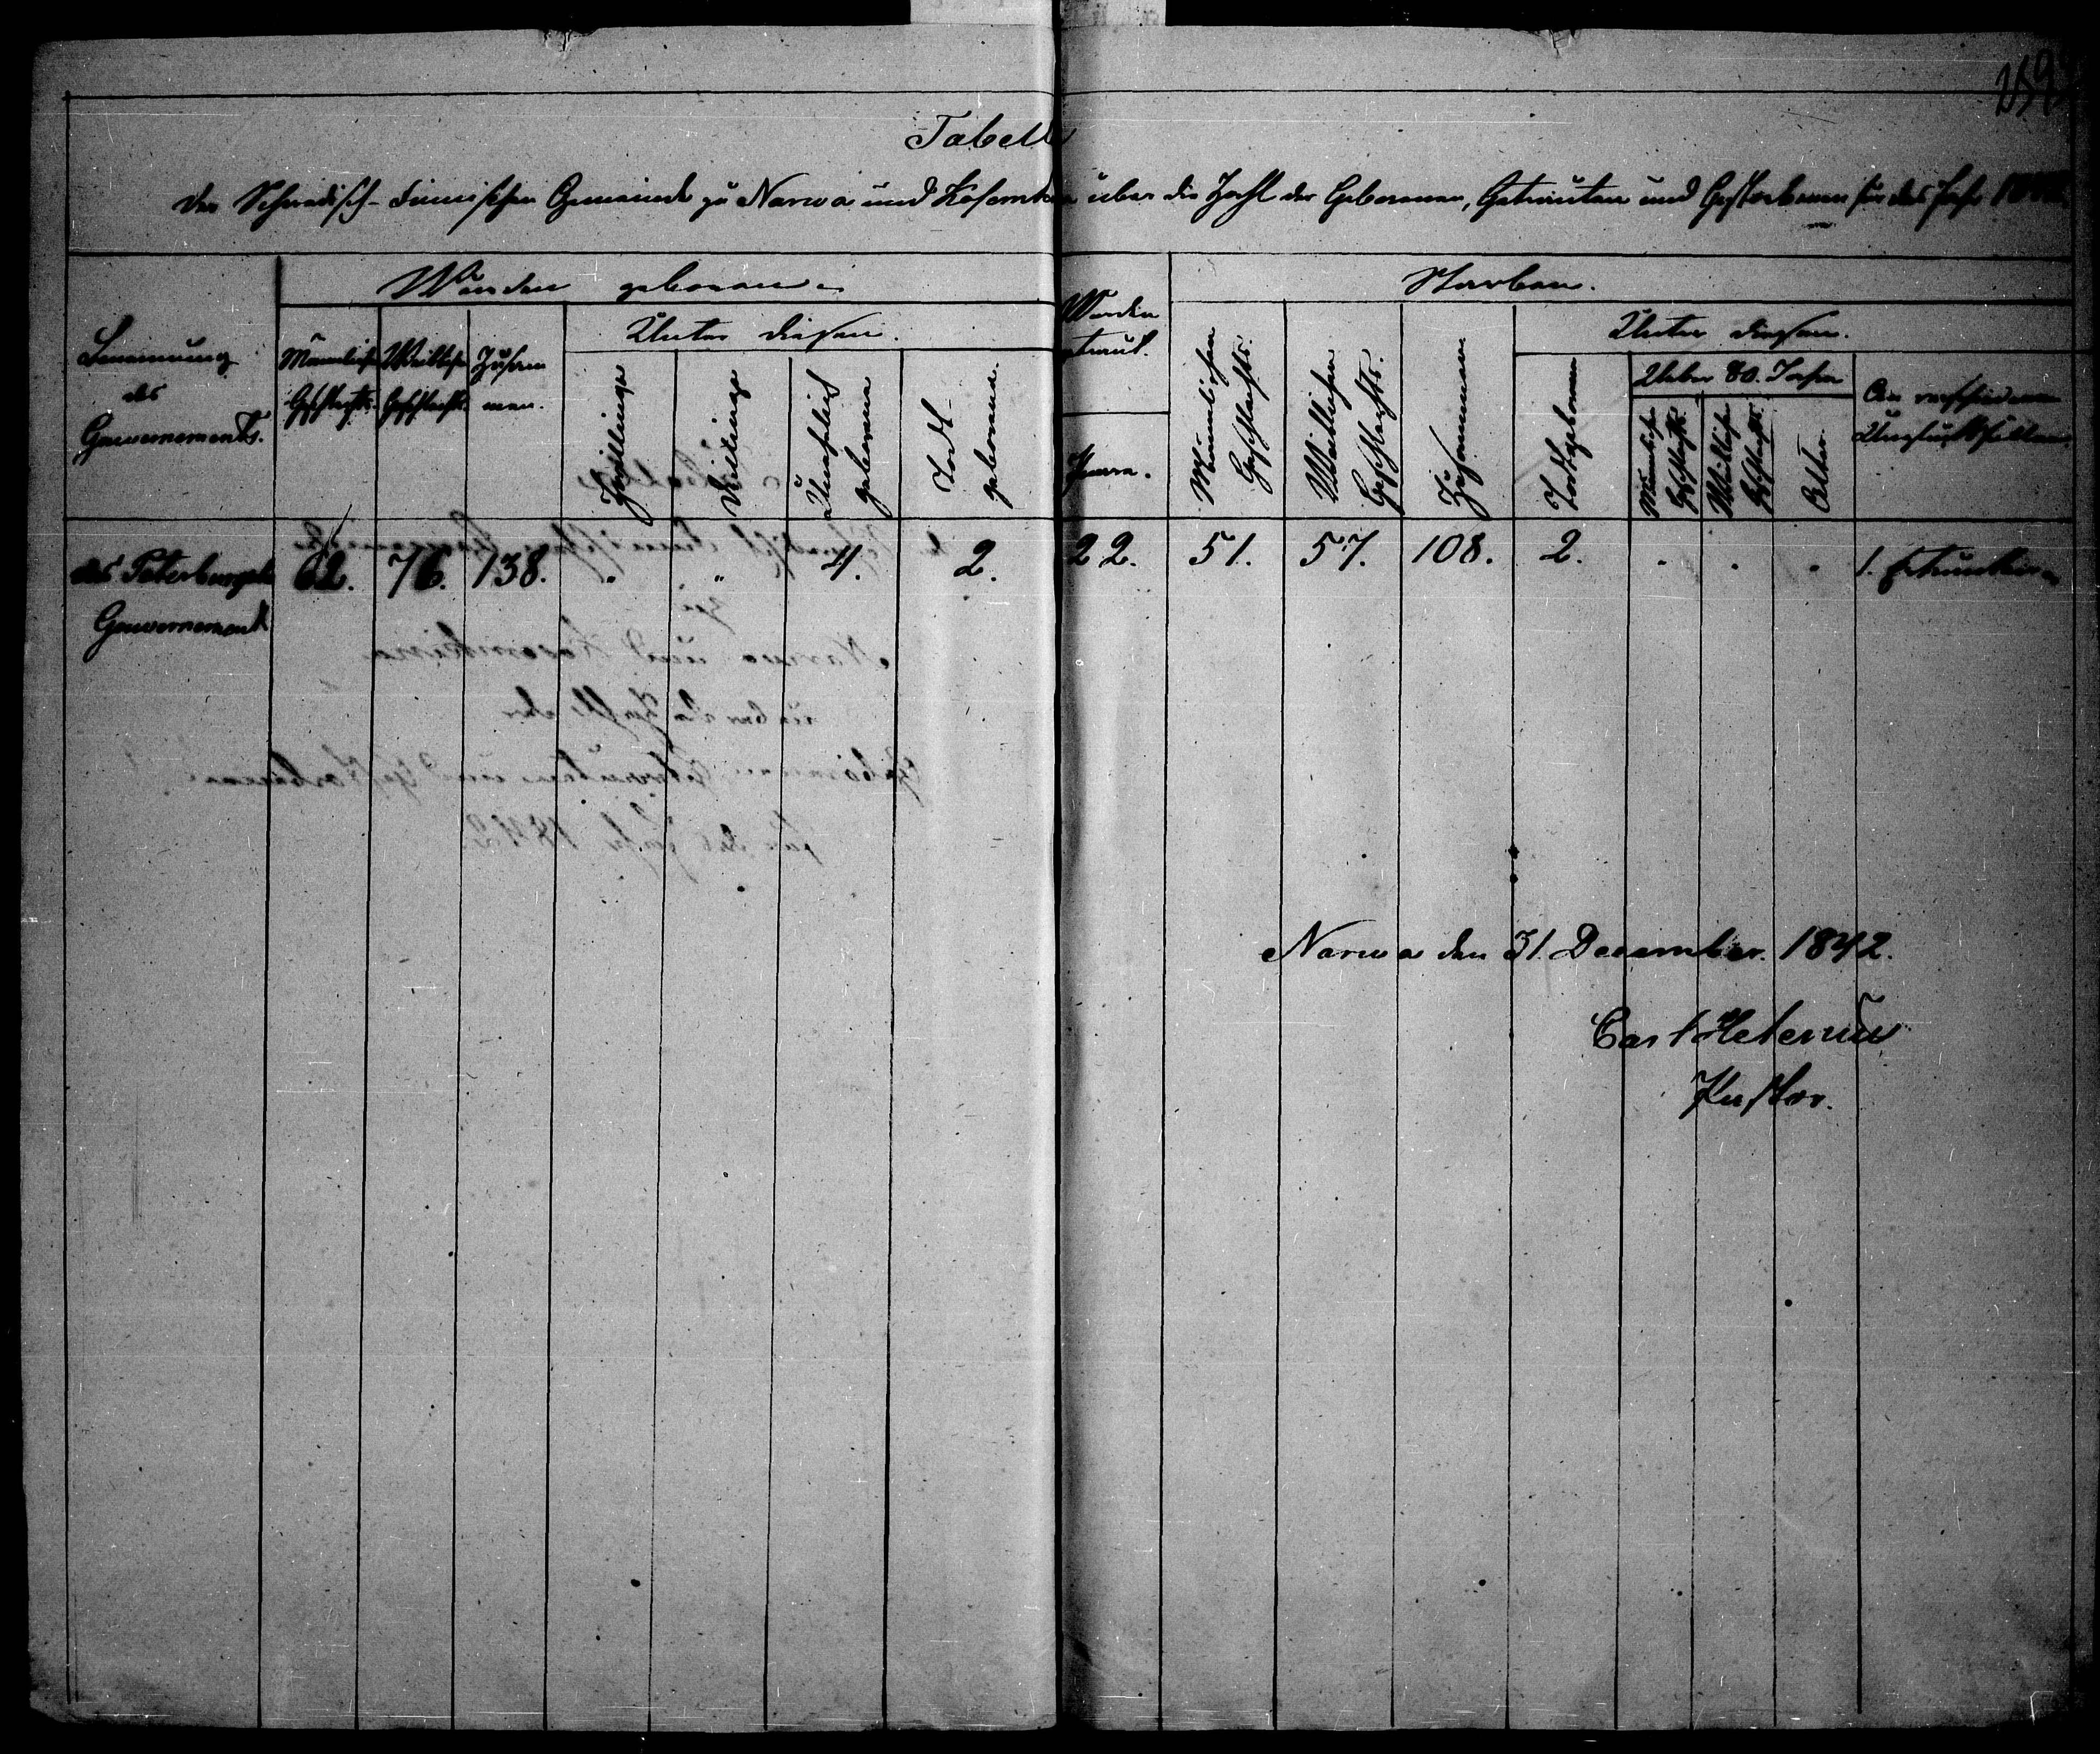 Tabelle
der Schwedisch-Finnischen Gemeinde zu Narwa und Kosemkina über die Zahl der Geborenen, Getrauten und Gestorbenen für das Jahr 1842.
Benennung
des
Gouvernements.
Wurden geboren
Männlichen
Geschlechts.
Weiblichen
Geschlechts.
Zusam
men.
Unter diesen.
Zwillinge
Drillinge
Unehelich
geborene
Todt-
geborene.
Wurden
getraut.
Paare.
Starben.
Männlichen
Geschlechts.
Weiblichen
Geschlechts.
Zusammen
Unter diesen.
Todtgeborene
Ueber 80. Jahre
Männlichen
Geschlechts
Weiblichen
Geschlechts
Alter.
An verschiedenen
Unglücksfällen
des Petersburgsche
Gouvernement
62. 76. 138. " " 4. 2. 22. 51. 57. 108. 2. . . . 1. Ertrunken
Narwa den 31. December. 1842.
Carl
Pastor.